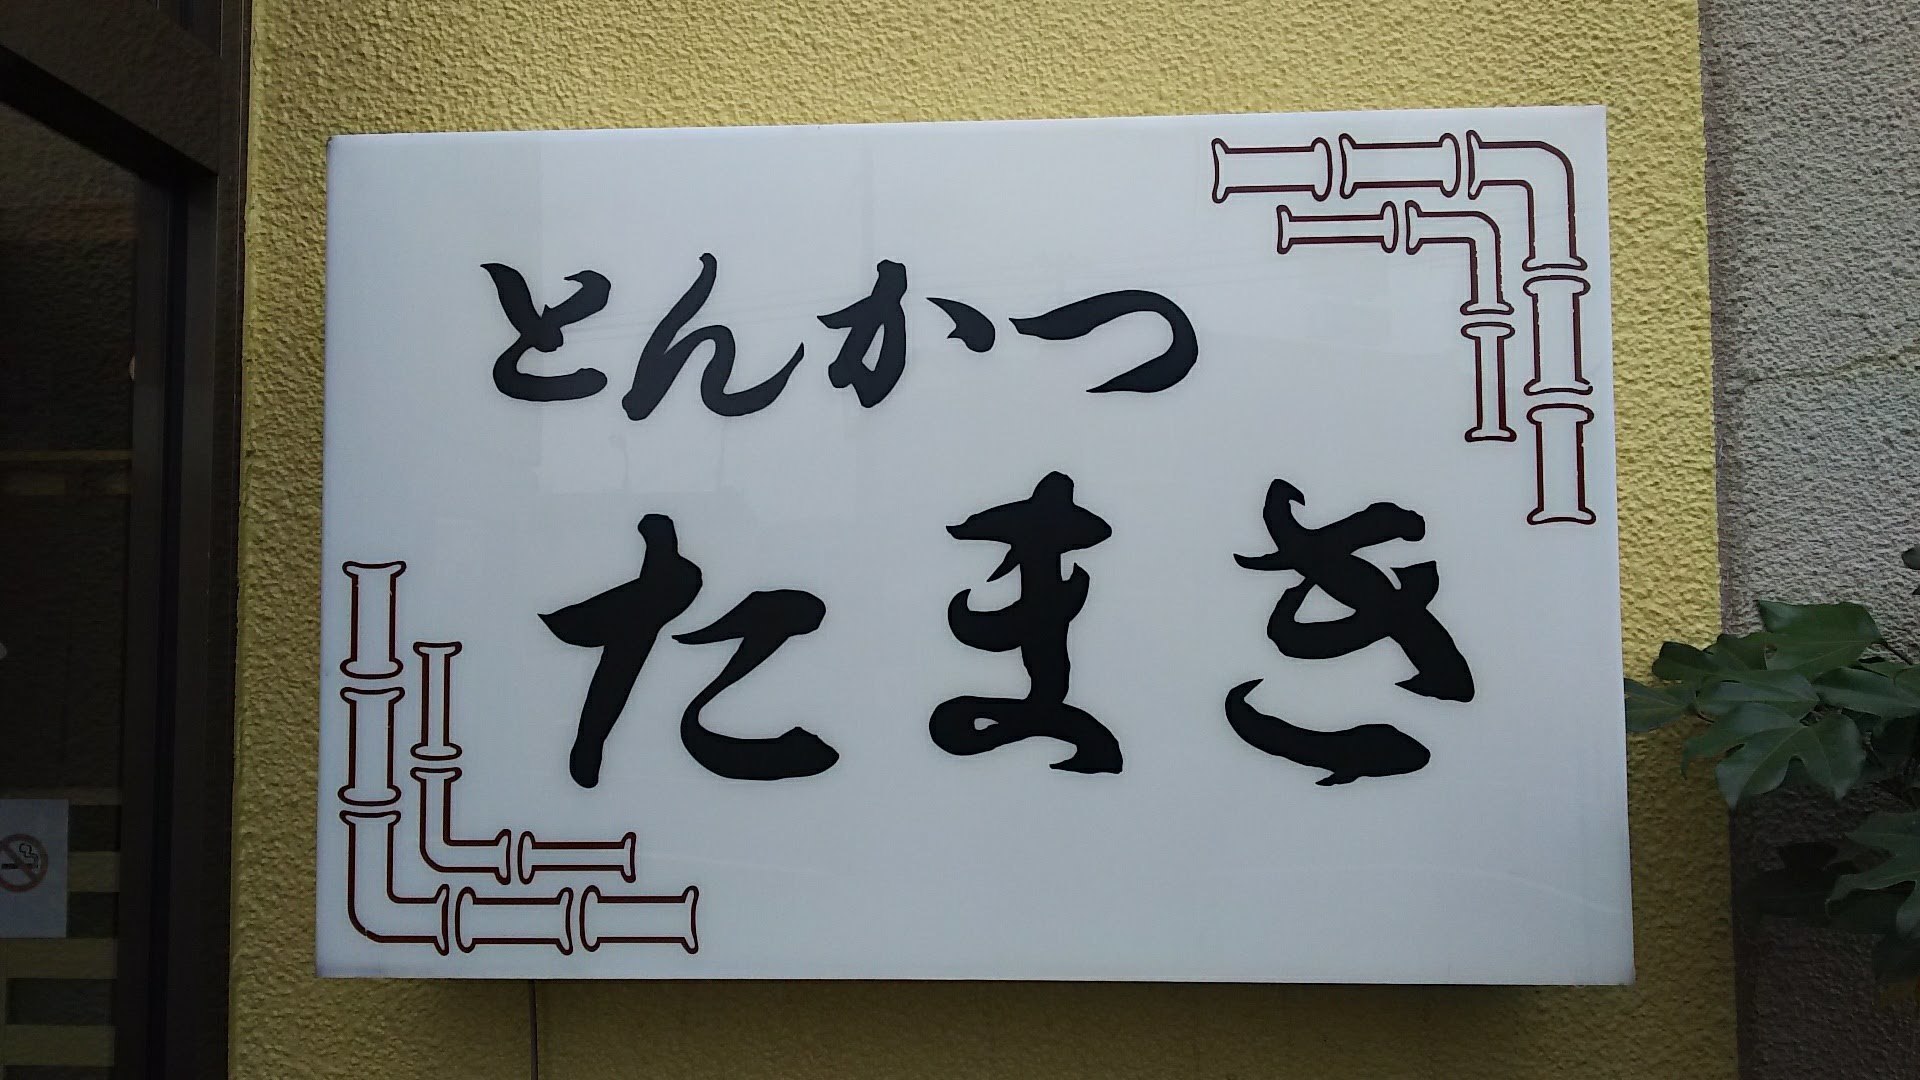 とんかつ
たまき